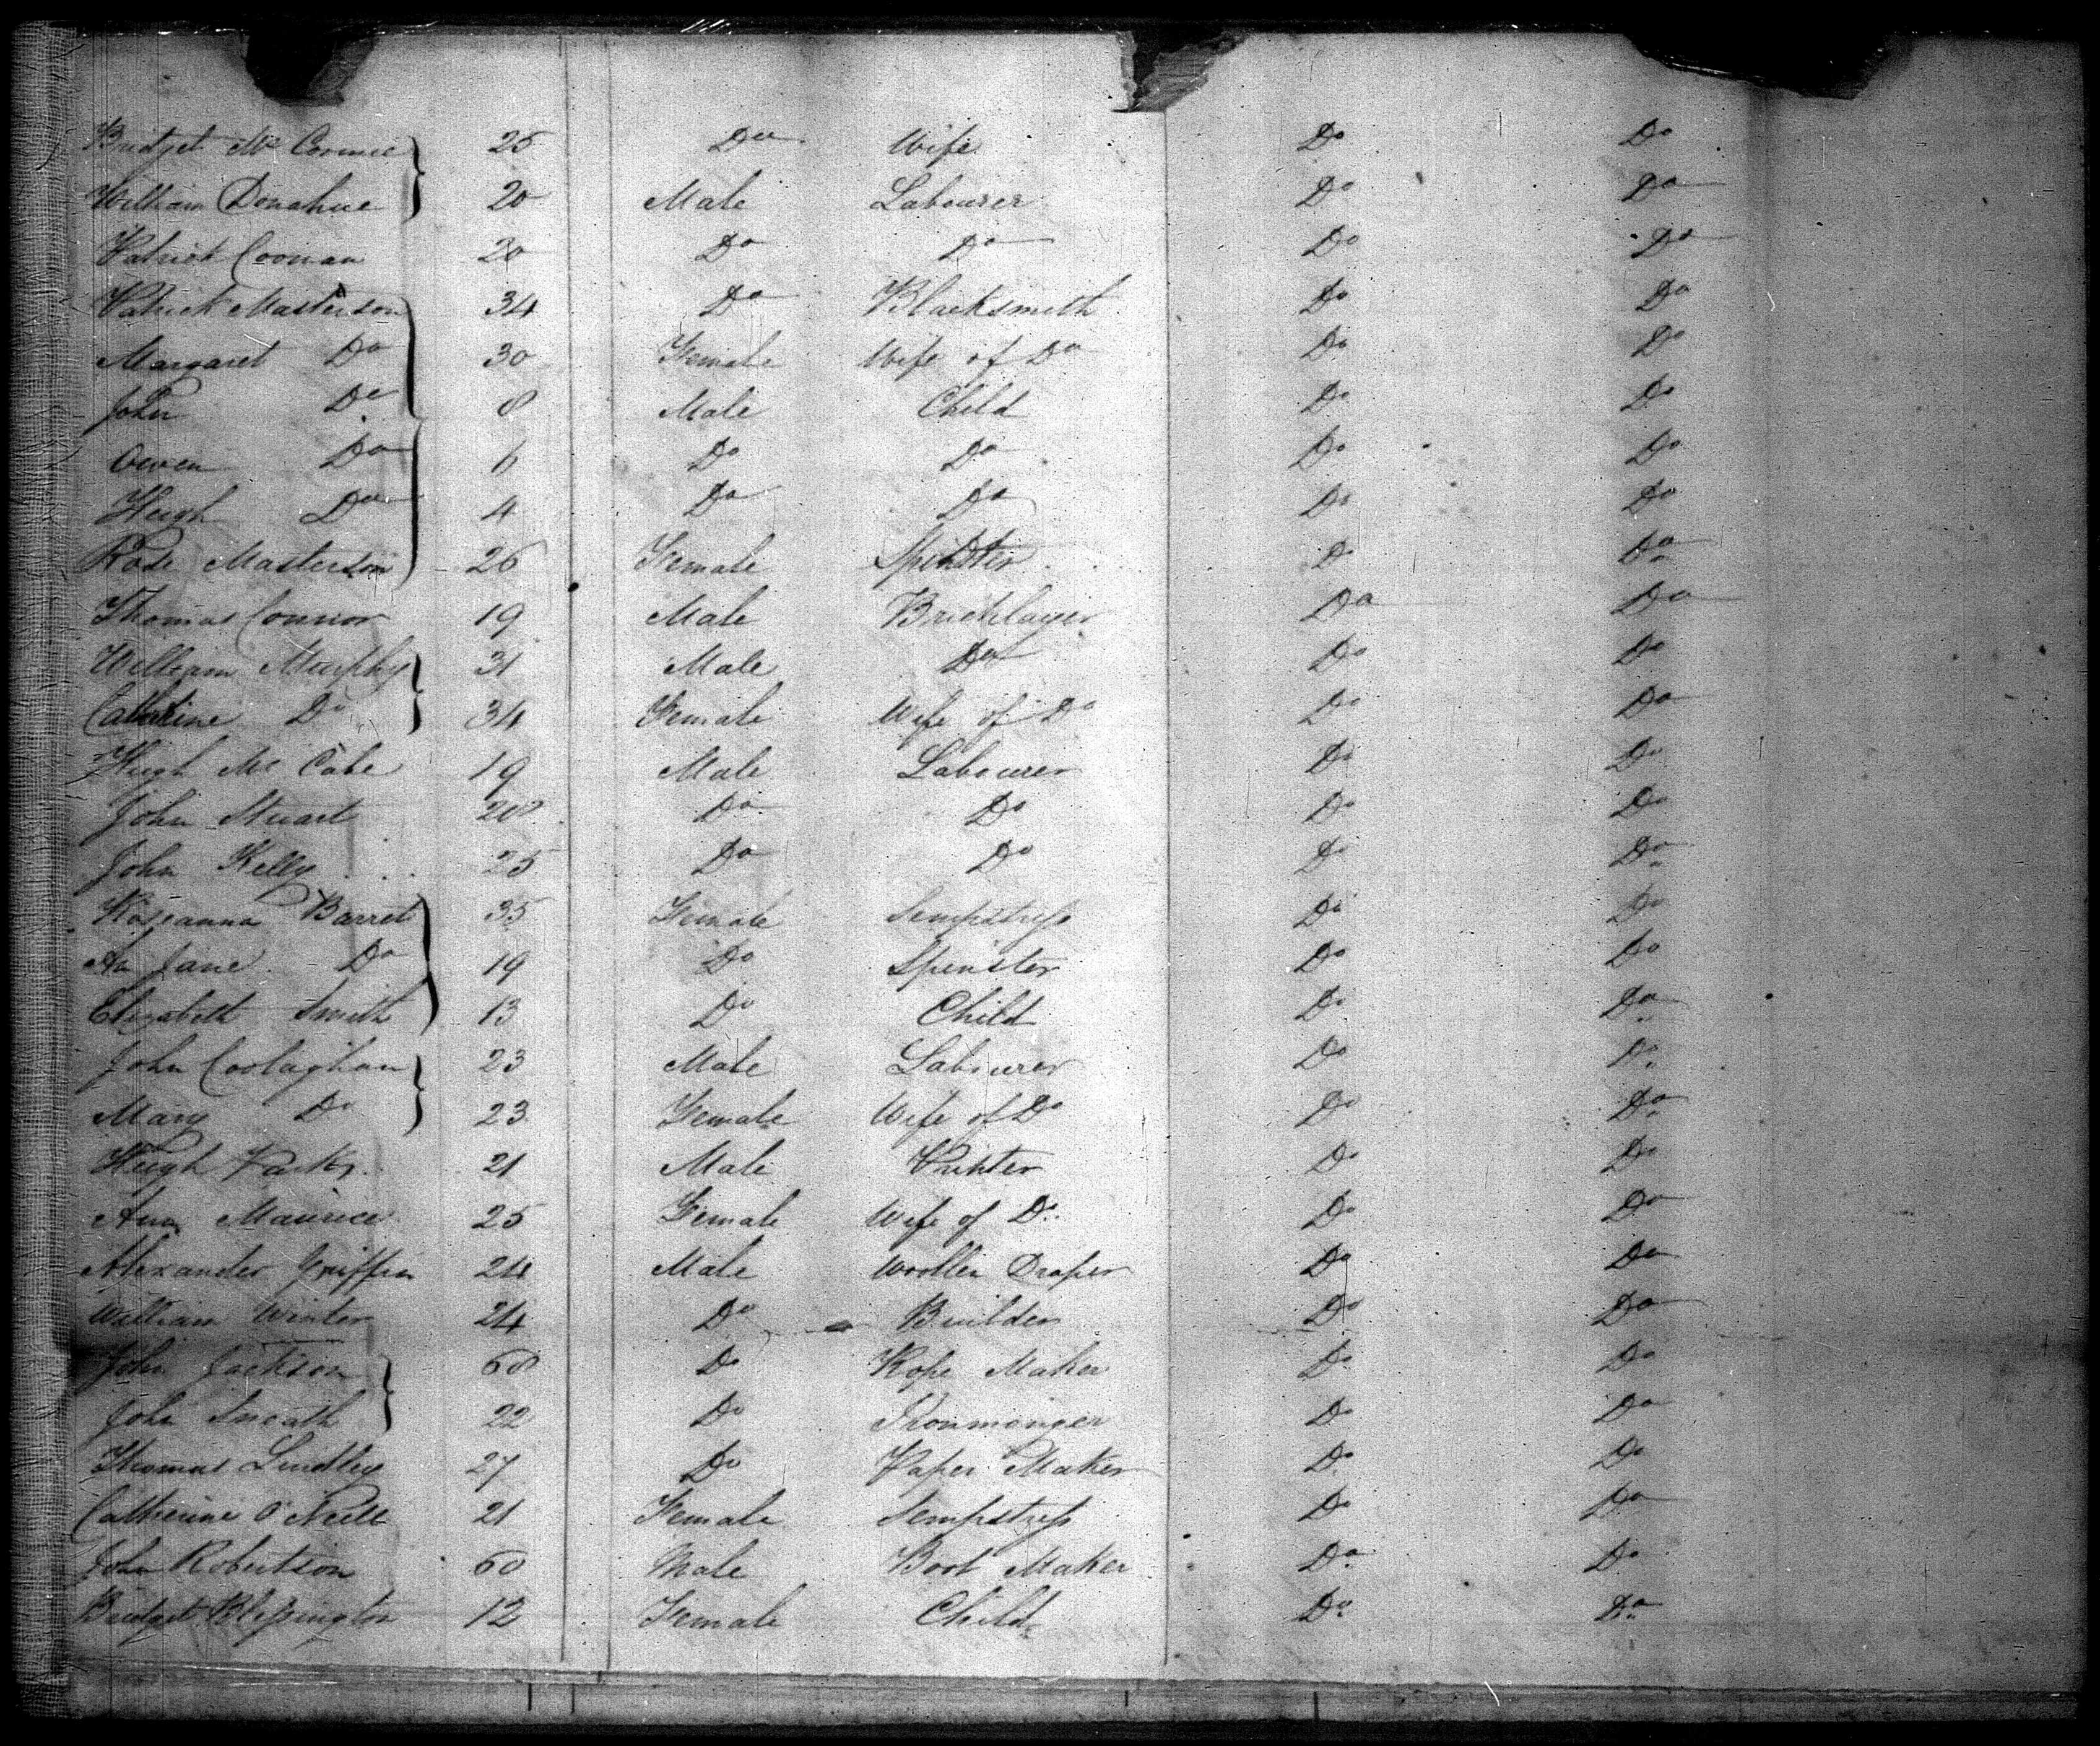 Bridget Mc Cormic 25 Do Wife Do Do
William Donahue 20 Male Labourer Do Do
Patrick Coonan 20 Do Do Do Do
Patrick Masterson 34 Do Blacksmith Do Do
Margaret Do 30 Female Wife of Do Do Do
John Do 8 Male Child Do Do
Owen Do 6 Do Do Do Do
Hugh Do 4 Do Do Do Do
Rose Masterson 26 Female Spinster Do Do
Thomas Connor 19 Male Bricklayer Do Do
William Murphy 31 Male Do Do Do
Catherine Do 34 Female Wife of Do Do Do
Hugh Mc Cabe 19 Male Labourer Do Do
John Stuart 20 Do Do Do Do
John Kelly 25 Do Do Do Do
Roseanna Barret 35 Female Sempstress Do Do
An Jane Do 19 Do Spinster Do Do
Elizabeth Smith 13 Do Child Do Do
John Coolaghan 23 Male Labourer Do Do
Mary Do 23 Female Wife of Do Do Do
Hugh Parks 21 Male Printer Do Do
Ann Maurice 25 Female Wife of Do Do Do
Alexander Griffin 24 Male Woollen Draper Do Do
William Winter 24 Do Builder Do Do
John Jackson 60 Do Rope Maker Do Do
John Sneath 22 Do Ironmonger Do Do
Thomas Lindley 27 Do Paper Maker Do Do
Catherine O'Neill 21 Female Sempstress Do Do
John Robertson 60 Male Boot Maker Do Do
Bridget Blessington 12 Female Child Do Do